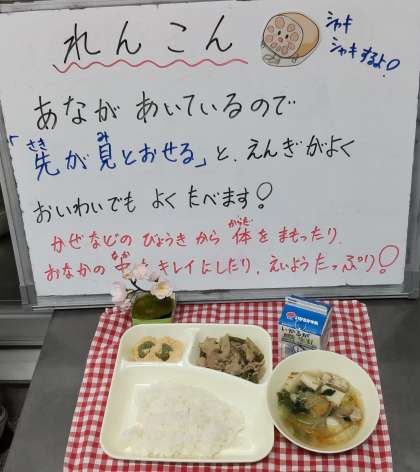 れんこん
シャキ
シャキするよ!
あながあいているので
さき み
「先が見とおせる」と、えんぎがよく
おいわいでもよくたべます!
からだ
かぜなどのびょうきから体をまもったり、
なか
おなかの中をキレイにしたり、えいようたっぷり!